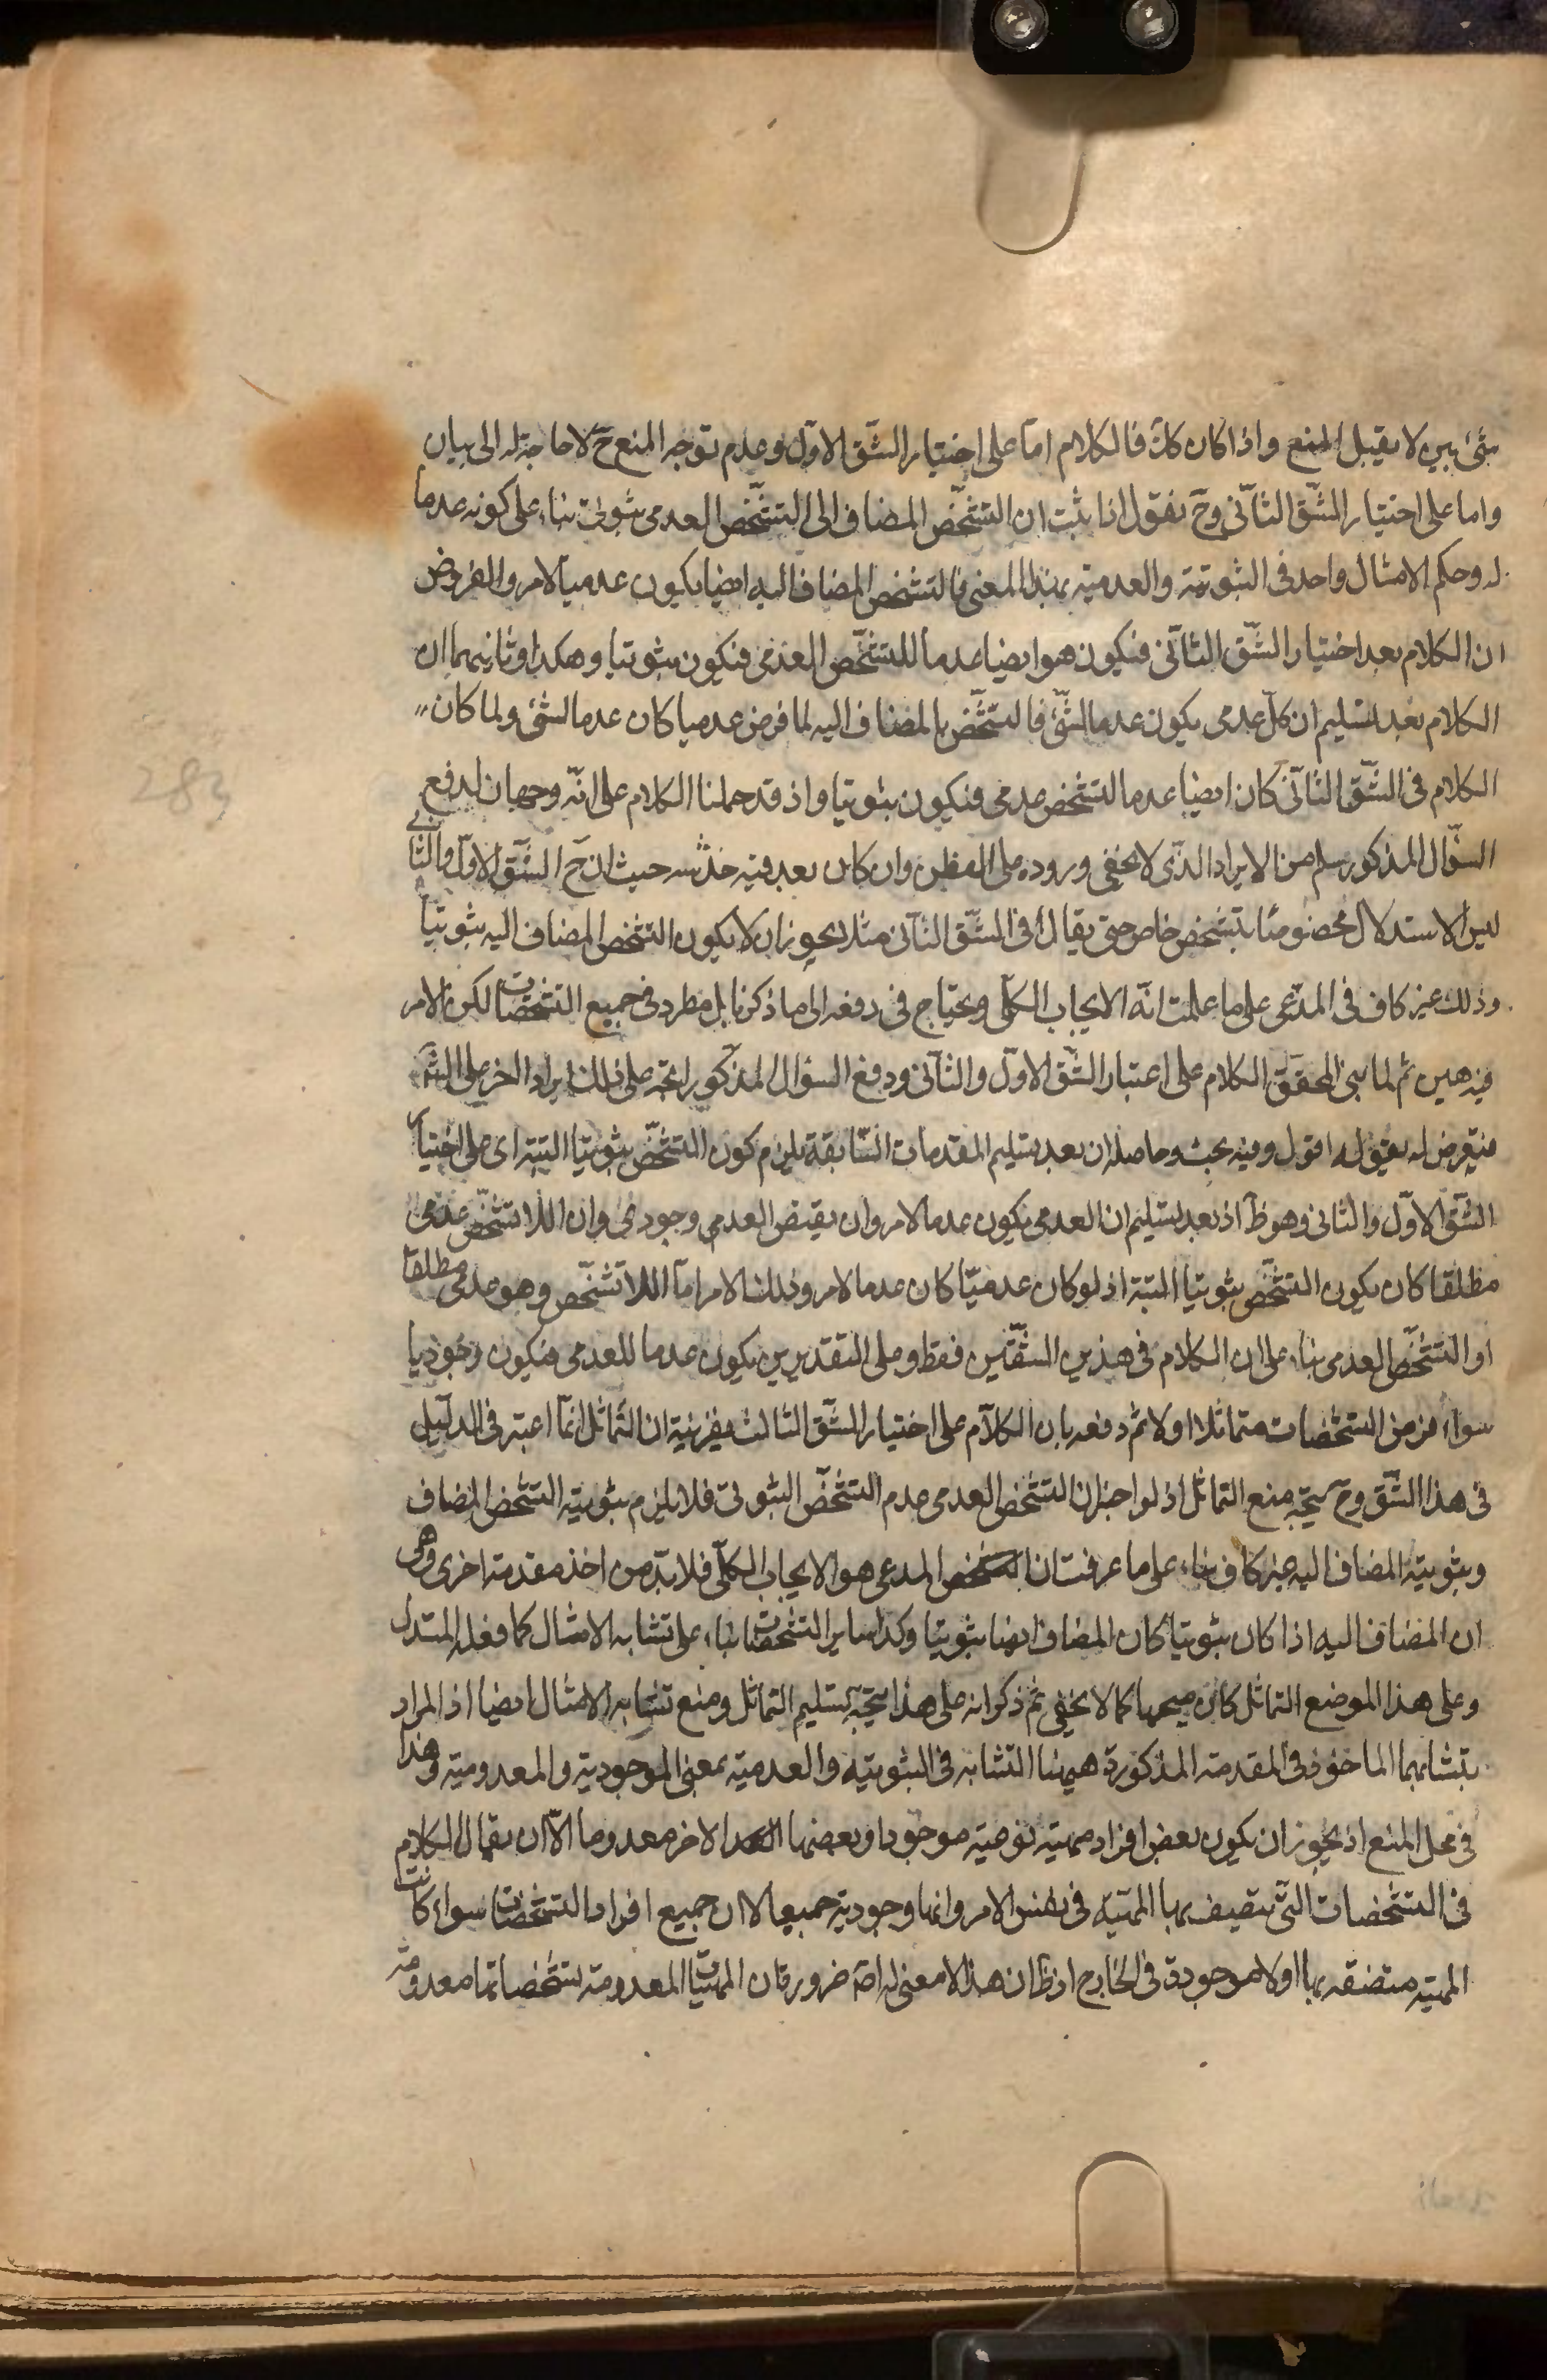 شئ بين لا يقبل المنع واذا كان كك فالكلام اما على اختيار الشّق الاوّل وعدم توجه المنع ح لا حاجة له الى بيان
واما على اختيار الشّق الثآنى وح نقول اذا ثبت ان التشخّص المضاف الى التشخّص العدمى ثبوتى بناء على كونه عدما
له وحكم الامثال واحد فى الثبوتية والعدمية بهذا المعنى فالتشخص المضاف اليه ايضا يكون عدميا لامر والمفروض
ان الكلام بعد اختيار الشّق الثآنى فيكون هو ايضا عدما للتشخّص العدمى فيكون ثبوتيا وهكذا وثانيهما ان
الكلام بعد تسليم ان كلّ عدمى يكون عدما لشئ فالتشخّص المضاف اليه لما فرض عدميا كان عدما لشئ ولما كان
الكلام فى الشّق الثآنى كان ايضا عدما لتشخص عدمى فيكون ثبوتيا واذ قد حملنا الكلام على انّه وجهان لدفع
السؤال المذكور سلم من الايراد الذى لا يخفى وروده على الفطن وان كان بعد فيه خدشه حيث ان ح الشّق الاوّل والثانى
ليس الاستدلال مخصوصًا بتشخص خاص حتى يقال فى الشّق الثآنى مثلا يجوز ان لا يكون التشخص المضاف اليه ثبوتيا
وذلك غير كاف فى المدّعى على ما علمت انّه الايجاب الكلّى ويحتاج فى دفعه الى ما ذكرنا بل مطرد فى جميع التشخصات لكن الامر
فيه هين ثم لما بنى المحقق الكلام على اعتبار الشّق الاوّل والثآنى ودفع السؤال المذكور اتجه على ذلك ايراد اخر على
فيعرض له بقوله اقول وفيه بحث وحاصله ان بعد تسليم المقدمات السّابقة يلزم كون التشخّص ثبوتيا البتة اى على اختيار
الشّق الاوّل والثانى وهو ظ اذ بعد تسليم ان العدمى يكون عدما لامر وان نقيض العدمى وجودى وان اللا تشخّص عدمى
مطلقا كان يكون التشخّص ثبوتيا البتة اذ لو كان عدميّا كان عدما لامر وذلك الامر امآ اللا تشخّص وهو عدمى مطلقا
او التشخّص العدمى بناء على ان الكلام فى هذين الشقّين فقط وعلى التقديرين يكون عدما للعدمى فيكون وجوديا
سواء فرض التشخصات متماثلا او لا ثم دفعه بان الكلآم على اختيار الشّق الثالث بقرينة ان التماثل انمّا اعتبر فى الدليل
فى هذا الشّق وح يتجه منع التماثل اذ لو اختير ان التشخص العدمى عدم التشخّص الثبوتى فلا يلزم ثبوتية التشخص المضاف
وثبوتية المضاف اليه غير كاف بناء على ما عرفت ان المدعى هو الايجاب الكلّى فلا بدّ من اخذ مقدمة اخرى وهى
ان المضاف اليه اذا كان ثبوتيا كان المضاف ايضا ثبوتيا وكذا ساير التشخصات بناء على تشابه الامثال كما فعله المستدل
وعلى هذا الموضع التماثل كان صحيحا كما لا يخفى ثم ذكر انه على هذا يتجه تسليم التماثل ومنع تشابه الامثال ايضا اذ المراد
بتشابهها الماخوذ فى المقدمة المذكورة ههنا التشابه فى الثبوتيه والعدمية بمعنى الموجودية والمعدومية وهذا
فى محل المنع اذ يجوز ان يكون بعض افراد مهية نوعية موجودا وبعضها الاخر معدوما الاّ ان يقال الكلام
فى التشخصات التّى يتصف بها المهية فى نفس الامر وانها وجودية جميعا لا ان جميع افراد التشخصات سواء كانت
المهية متصفه بها او لا موجودة فى الخارج اذ ظ ان هذا لا معنى له اصلا ضرورة ان المهيّات المعدومة تشخصاتها معدومة
283